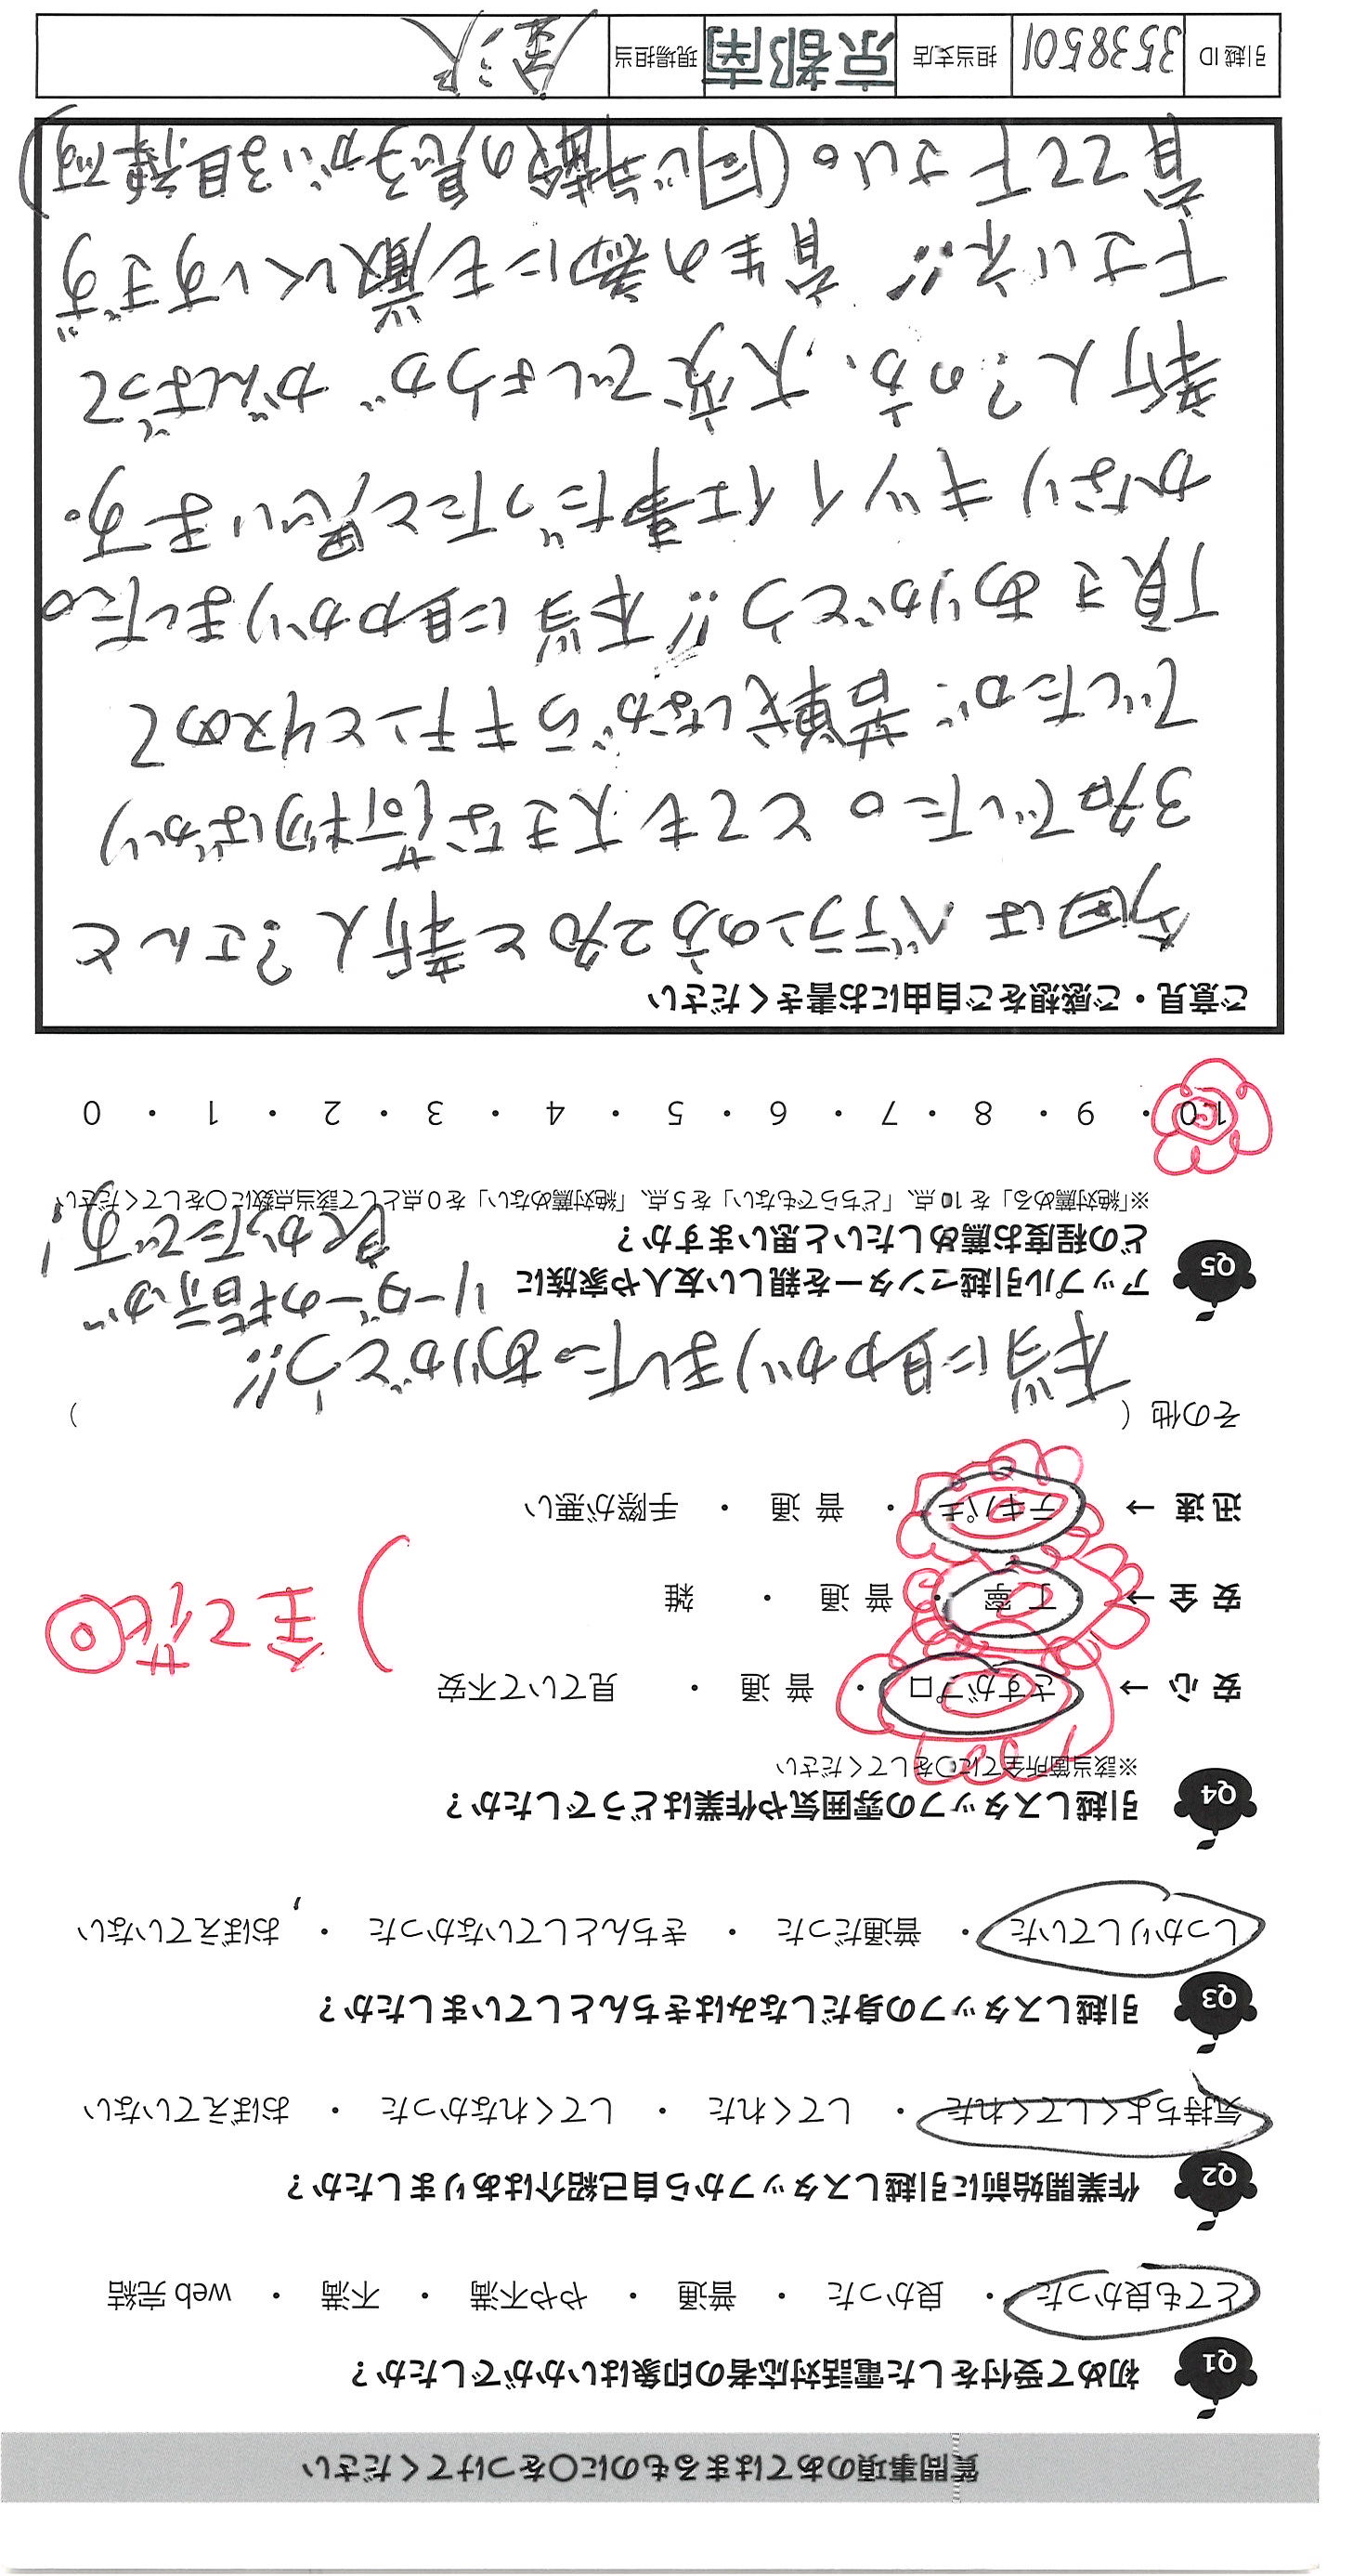 質問事項のあてはまるものに○をつけてください
Q1 初めて受付をした電話対応者の印象はいかがでしたか？
とても良かった ・ 良かった ・ 普通 ・ やや不満 ・ 不満 ・ web 完結
Q2 作業開始前に引越しスタッフから自己紹介はありましたか？
気持ちよくしてくれた ・ してくれた ・ してくれなかった ・ おぼえていない
Q3 引越しスタッフの身だしなみはきちんとしていましたか？
しっかりしていた ・ 普通だった ・ きちんとしていなかった ・ おぼえていない
Q4 引越しスタッフの雰囲気や作業はどうでしたか？
※該当箇所全てに○をしてください
安心 → さすがプロ ・ 普通 ・ 見ていて不安
安全 → 丁寧 ・ 普通 ・ 雑
全て花○
迅速 → テキパキ ・ 普通 ・ 手際が悪い
その他（ ）
本当に目わかりました。ありがとう!!
リーダーの指示が
良かったです!
Q5 アップル引越センターを親しい友人や家族に
どの程度お薦めしたいと思いますか？
※「絶対薦める」を10点、「どちらでもない」を5点、「絶対薦めない」を0点として該当点数に○をしてください
10 ・ 9 ・ 8 ・ 7 ・ 6 ・ 5 ・ 4 ・ 3 ・ 2 ・ 1 ・ 0
ご意見・ご感想をご自由にお書きください
今回はベテランの方2名と新人?さんと
3名でした。とても大きな荷物ばかり
でしたが、苦戦しながらキチンとリスめて
頂きありがとう!! 本当に目わかりました。
かなりキツイ仕事だったと思います。
新人?の方、大変でしょうが がんばって
下さいネ!! 育生の為にも厳しくいすぎず
育てて下さい。(同じ年齢の息子がいる目線です)
引越ID 3538501 担当支店 京都南 現場担当 金沢